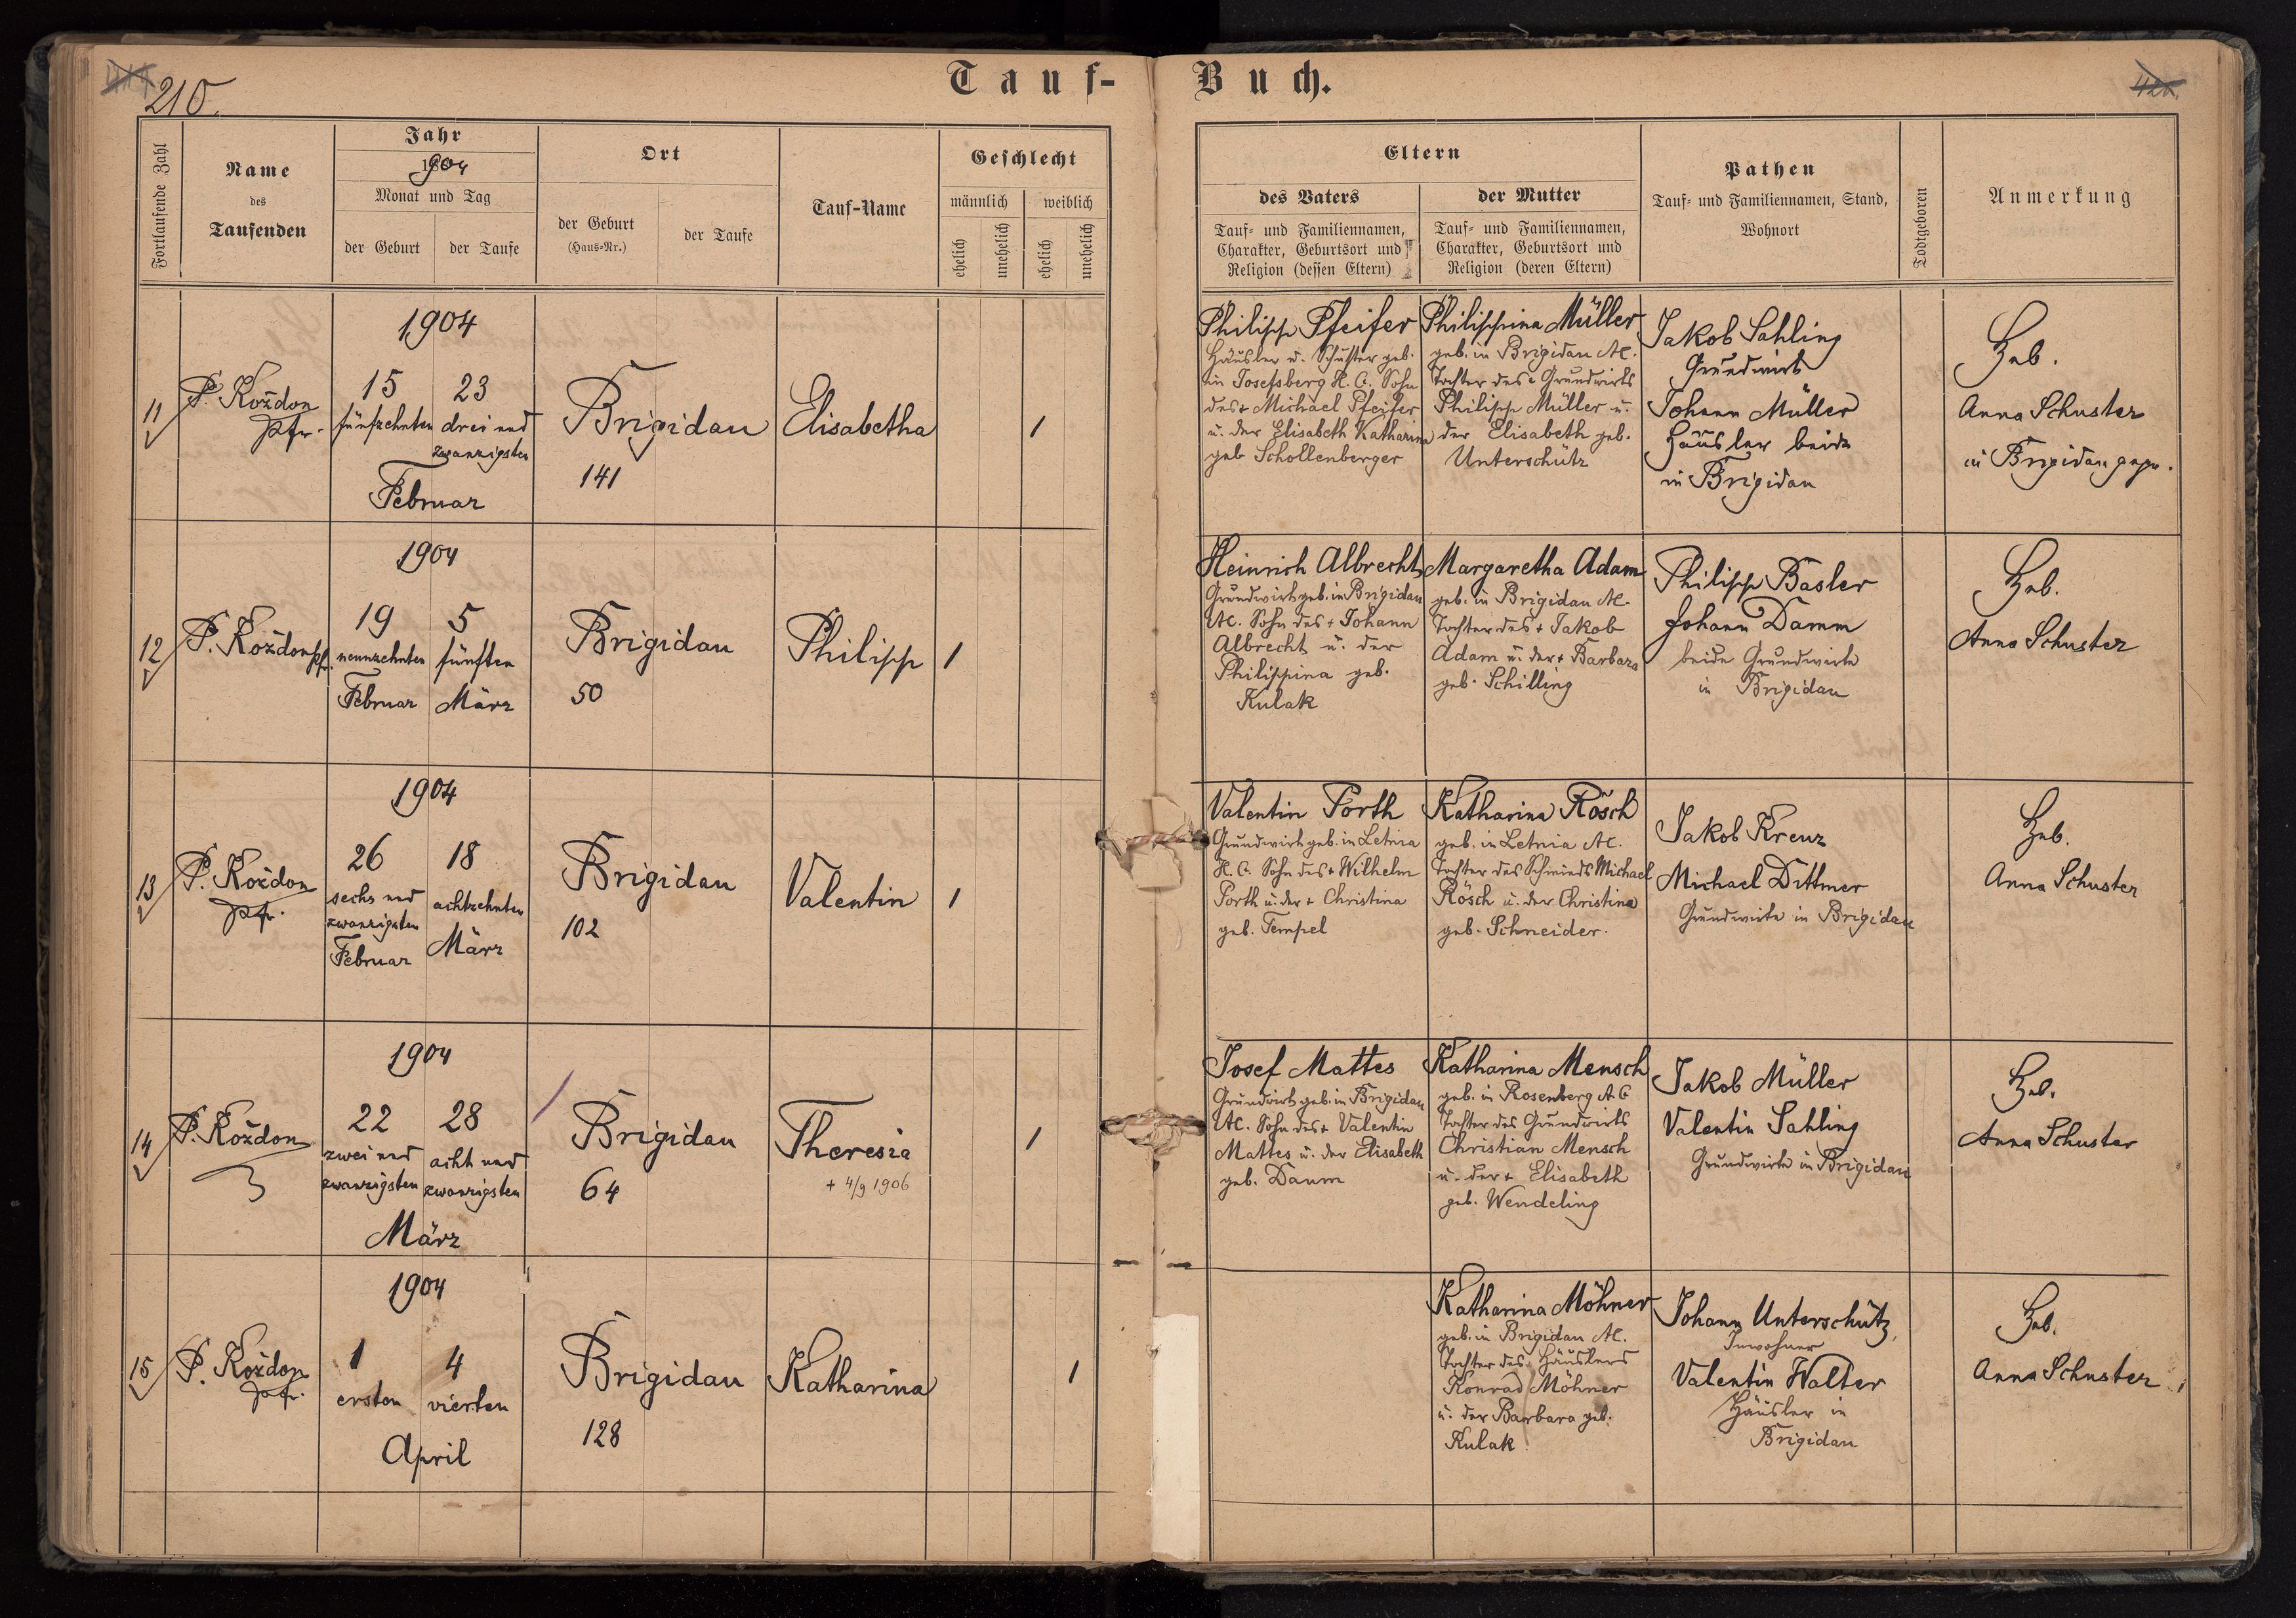 210.
Tauf-Buch.
Fortlaufende Zahl
Name
des
Taufenden
Jahr
1904
Monat und Tag
der Geburt
der Taufe
Ort
der Geburt
(Haus-Nr.)
der Taufe
Tauf-Name
Geschlecht
männlich
weiblich
ehelich
unehelich
ehelich
unehelich
Eltern
des Vaters
Tauf- und Familiennamen,
Charakter, Geburtsort und
Religion (dessen Eltern)
der Mutter
Tauf- und Familiennamen,
Charakter, Geburtsort und
Religion (deren Eltern)
Pathen
Tauf- und Familiennamen, Stand,
Wohnort
Todtgeboren
Anmerkung
11
P. Koždon
pfr.
1904
15
fünfzehnten
23
drei und
zwanzigsten
Februar
Brigidau
141
Elisabetha
1
Philipp Pfeifer
Häusler u. Schuster geb.
in Josefsberg H. C. Sohn
des + Michael Pfeifer
u. der Elisabeth Katharina
geb Schollenberger
Philippina Müller
geb. in Brigidau AC.
Tochter des + Grundwirts
Philipp Müller u.
der Elisabeth geb.
Unterschütz
Jakob Sahling
Grundwirt
Johann Müller
Häusler beide
in Brigidau
Heb.
Anna Schuster
in Brigidau gepr.
12
P. Koždon pfr.
1904
19
neunzehnten
Februar
5
fünften
März
Brigidau
50
Philipp
1
Heinrich Albrecht
Grundwirt geb. in Brigidau
AC. Sohn des + Johann
Albrecht u. der
Philippina geb.
Kulak
Margaretha Adam
geb. in Brigidau AC.
Tochter des + Jakob
Adam u. der + Barbara
geb. Schilling
Philipp Basler
Johann Damm
beide Grundwirte
in Brigidau
Heb.
Anna Schuster
13
P. Koždon
pfr.
1904
26
sechs und
zwanzigsten
Februar
18
achtzehnten
März
Brigidau
102
Valentin
1
Valentin Porth
Grundwirt geb. in Letnia
H. C. Sohn des + Wilhelm
Porth u. der + Christina
geb. Tempel
Katharina Rösch
geb. in Letnia AC.
Tochter des Schmieds Michael
Rösch u. der Christina
geb. Schneider.
Jakob Kreuz
Michael Dittmer
Grundwirte in Brigidau
Heb.
Anna Schuster
14
P. Koždon
1904
22
zwei und
zwanzigsten
28
acht und
zwanzigsten
März
Brigidau
64
Theresia
+ 4/9 1906
1
Josef Mattes
Grundwirt geb. in Brigidau
AC. Sohn des + Valentin
Mattes u. der Elisabeth
geb. Daum
Katharina Mensch
geb. in Rosenberg A C
Tochter des Grundwirts
Christian Mensch
u. der + Elisabeth
geb. Wendeling
Jakob Müller
Valentin Sahling
Grundwirte in Brigidau
Heb.
Anna Schuster
15
P. Koždon
pfr.
1904
1
ersten
4
vierten
April
Brigidau
128
Katharina
1
Katharina Möhner
geb. in Brigidau AC.
Tochter des Häuslers
Konrad Möhner
u. der Barbara geb.
Kulak
Johann Unterschütz,
Inwohner
Valentin Walter
Häusler in
Brigidau
Heb.
Anna Schuster